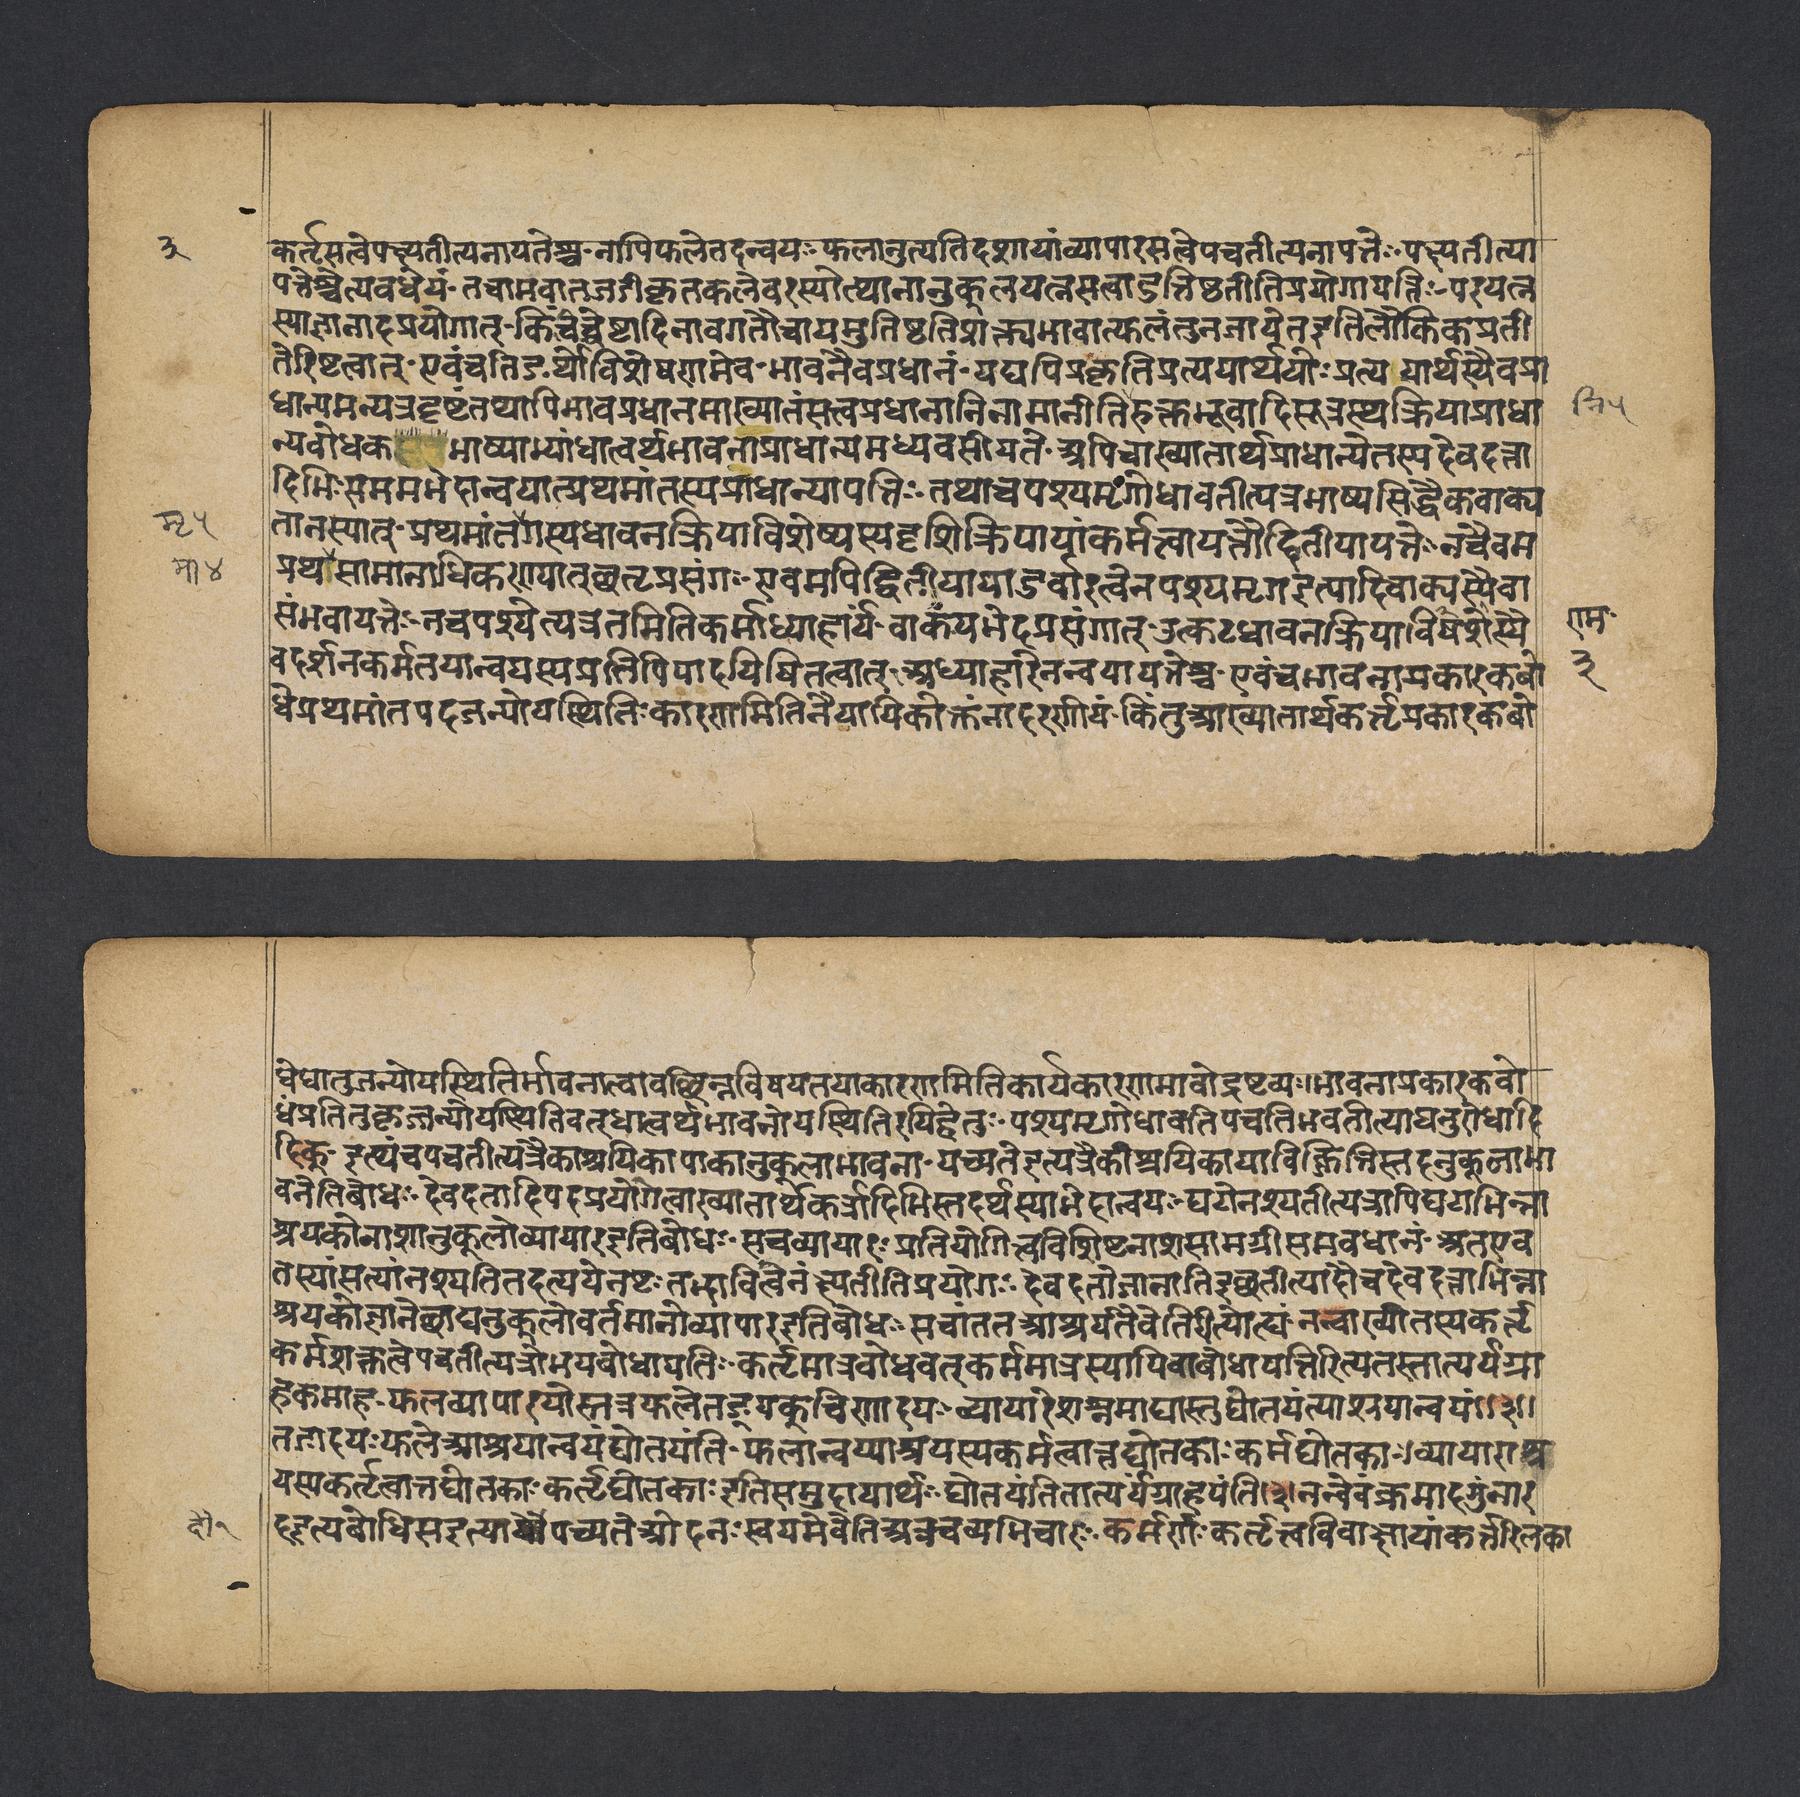 ३
कर्तृसत्वेपक्ष्यतीत्यनापतेश्च नापिफलेतदन्वयः फलानुत्पतिदशायांव्यापारसत्वेपचतीत्यनापत्तेः पक्ष्यतीत्या
पत्तेश्चैत्यवधेयं तच्चामवातजडीकृतकलेवरस्योत्थानानुकूलयत्नसत्वाऽत्तिष्ठतीतिप्रयोगापत्तिः परयत्न
स्याज्ञानादप्रयोगात् किंचेच्चेष्टादिनावगतौचायमुतिष्ठतिशक्त्यभावात्फलंतुनजायेतइतिलौकिकप्रती
तेरिष्टत्वात् एवंचतिङर्थोविशेषणमेव भावनैवप्रधानं यद्यपिप्रकृतिप्रत्ययार्थयोः प्रत्ययार्थस्यैवप्रा
धान्यमन्यत्रदृष्टंतथापिभावप्रधानमाख्यातंसत्वप्रधानानिनामानीतिरुक्तभूवादिसूत्रस्थक्रियाप्राधा
न्यबोधक भाष्याभ्यांधात्वर्थभावनाप्राधान्यमध्यवसीयते अपिचाख्यातार्थप्राधान्येतस्यदेवदत्ता
दिभिः सममभेदान्वयात्प्रथमांतस्यप्राधान्यापत्तिः तथाचपश्यमृगोधावतीत्यत्रभाष्यसिद्धैकवाक्य
तानस्यात् प्रथमांतगस्यधावनक्रियाविशेष्यस्यदृशिक्रियायांकर्मत्वापत्तौद्वितीयापत्तेः नचैवम
प्रथसामानाधिकरण्यात्छतृप्रसंगः एवमपिद्वितीयायाऽर्वारत्वेनपश्यमृगइत्यादिवाक्यस्यैवा
संभवापत्तेः नचपश्येत्यत्रतमितिकर्माध्याहार्यं वाक्यभेदप्रसंगात् उत्कटधावनक्रियाविषेशेस्यै
वदर्शनकर्मतयान्वयस्यप्रतिपिपादयिषितत्वात् अध्याहारेनन्वयापत्तेश्च एवंचभावनाप्रकारकबो
धेप्रथमांतपदजन्योपस्थितिः कारणमितिनैयायिकोक्तंनादरणीयं किंतुआख्यातार्थकर्तृप्रकारकबो
त्नि५
मृ५
मा४
णम
३
धेधातुजन्योपस्थितिर्भावनात्वावच्छिन्नविषयतयाकारणमितिकार्यकारणभावोद्रष्टव्यः।भावनाप्रकारकबो
धंप्रतितुकृज्जन्योपस्थितिवत्धात्वर्थभावनोपस्थितिरपिहेतुः पश्यमृगोधावतिपचतिभवतीत्याद्यनुरोधादि
दिक् इत्थंचपचतीत्यत्रैकाश्रयिकापाकानुकूलाभावना पच्यतेइत्यत्रैकाश्रयिकायाविक्लित्तिस्तदनुकूलाभा
वनेतिबोधः देवदतादिपदप्रयोगेत्वाख्यातार्थकर्त्रादिभिस्तदर्थस्याभेदान्वयः घटोनश्यतीत्यत्रापिघटाभिन्ना
श्रयकोनाशानुकूलोव्यापारइतिबोधः सचव्यापारः प्रतियोगित्वविशिष्टनाशसामग्रीसमवधानं अतएव
तस्यांसत्यांनश्यतितदत्ययेनष्टः तद्भावित्वेनंक्ष्यतीतिप्रयोगः देवदतोजानातिइच्छतीत्यादौचदेवदत्ताभिन्ना
श्रयकोज्ञानेच्छाद्यनुकूलोवर्तमानोव्यापारइतिबोधः सचांततआश्रयतैवेतिरीत्योह्यं नन्वाख्यातस्यकर्तृ
कर्मशक्तत्वेपचतीत्यत्रोभयबोधापतिः कर्तृमात्रबोधवत्कर्ममात्रस्यापिबोधापत्तिरित्यतस्तात्पर्यग्रा
हकमाह फलव्यापारयोस्तत्रफलेतङ्यक्चिणादयः व्यापारेशप्श्नमाद्यास्तुद्योतयंत्याश्रयान्वयं।।३।।
तङादयःफलेआश्रयान्वयंद्योतयंति फलान्वय्याश्रयस्यकर्मत्वात्तद्योतकाःकर्मद्योतकाः।व्यापाराश्र
यस्यकर्तृत्वात्तद्योतकाः कर्तृद्योतकाःइतिसमुदायार्थः द्योतयंतितात्पर्यंग्राहयंति।३।नन्वेवंक्रमादमुंनार
दइत्यबोधिसइत्यादौपच्यतेओदनःस्वयमेवेतिअत्रचव्यभिचारः कर्मणः कर्तृत्वविवाक्षायांकर्त्तरिलका
दौ१